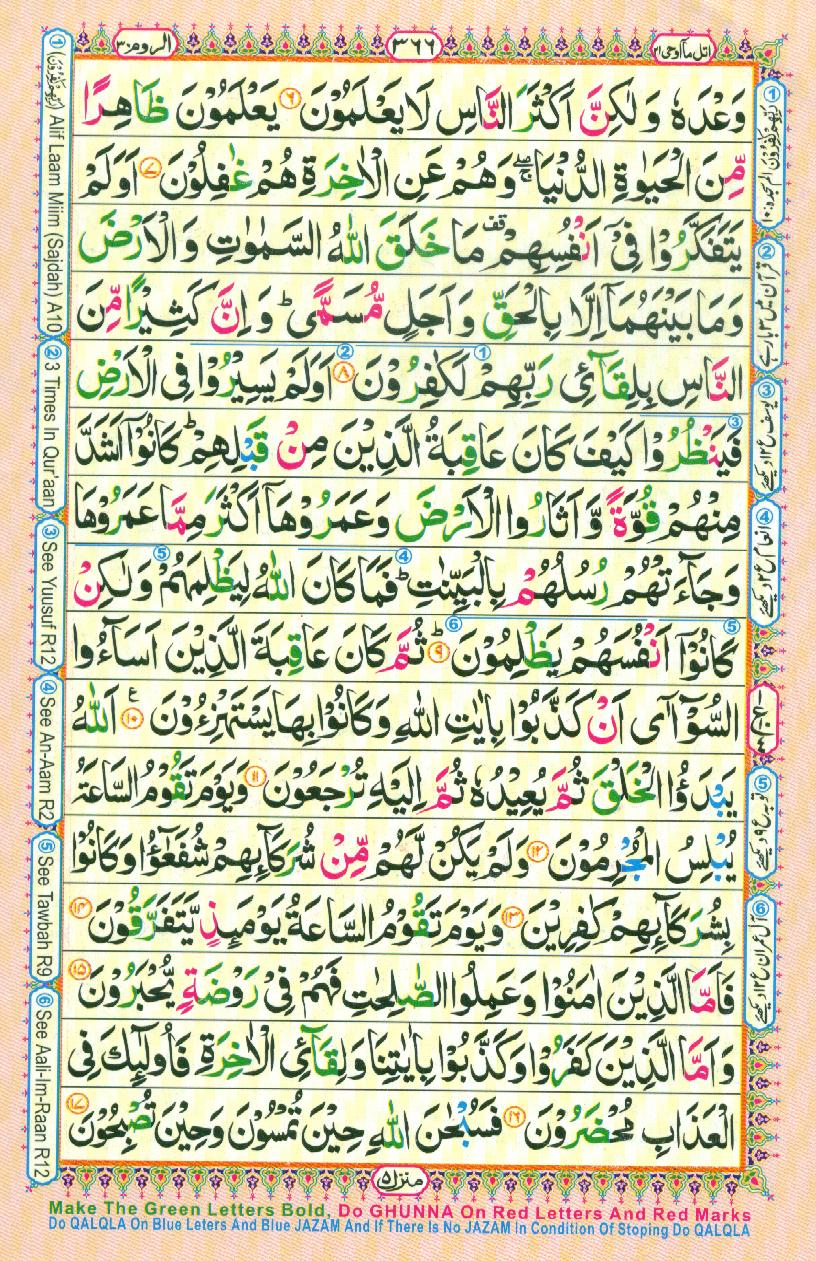 اتل ما اوحی ۲۱
۳۶۶
الروم ۳۰
وَعْدَهٗ وَلٰكِنَّ اَكْثَرَ النَّاسِ لَا يَعْلَمُوْنَ ۶ يَعْلَمُوْنَ ظَاهِرًا
مِّنَ الْحَيٰوةِ الدُّنْيَا ۖۚ وَهُمْ عَنِ الْاٰخِرَةِ هُمْ غٰفِلُوْنَ ۷ اَوَلَمْ
يَتَفَكَّرُوْا فِىْٓ اَنْفُسِهِمْ قف مَا خَلَقَ اللّٰهُ السَّمٰوٰتِ وَالْاَرْضَ
وَمَا بَيْنَهُمَآ اِلَّا بِالْحَقِّ وَاَجَلٍ مُّسَمًّى ؕ وَاِنَّ كَثِيْرًا مِّنَ
النَّاسِ بِلِقَآئِ رَبِّهِمْ لَكٰفِرُوْنَ ۸ اَوَلَمْ يَسِيْرُوْا فِى الْاَرْضِ
فَيَنْظُرُوْا كَيْفَ كَانَ عَاقِبَةُ الَّذِيْنَ مِنْ قَبْلِهِمْ ؕ كَانُوْٓا اَشَدَّ
مِنْهُمْ قُوَّةً وَّاَثَارُوا الْاَرْضَ وَعَمَرُوْهَآ اَكْثَرَ مِمَّا عَمَرُوْهَا
وَجَآءَتْهُمْ رُسُلُهُمْ بِالْبَيِّنٰتِ ؕ فَمَا كَانَ اللّٰهُ لِيَظْلِمَهُمْ وَلٰكِنْ
كَانُوْٓا اَنْفُسَهُمْ يَظْلِمُوْنَ ؕ ۹ ثُمَّ كَانَ عَاقِبَةَ الَّذِيْنَ اَسَآءُوا
السُّوْٓآٰى اَنْ كَذَّبُوْا بِاٰيٰتِ اللّٰهِ وَكَانُوْا بِهَا يَسْتَهْزِءُوْنَ ۱۰ ع اَللّٰهُ
يَبْدَؤُا الْخَلْقَ ثُمَّ يُعِيْدُهٗ ثُمَّ اِلَيْهِ تُرْجَعُوْنَ ۱۱ وَيَوْمَ تَقُوْمُ السَّاعَةُ
يُبْلِسُ الْمُجْرِمُوْنَ ۱۲ وَلَمْ يَكُنْ لَّهُمْ مِّنْ شُرَكَآئِهِمْ شُفَعٰٓؤُا وَكَانُوْا
بِشُرَكَآئِهِمْ كٰفِرِيْنَ ۱۳ وَيَوْمَ تَقُوْمُ السَّاعَةُ يَوْمَئِذٍ يَّتَفَرَّقُوْنَ ۱۴
فَاَمَّا الَّذِيْنَ اٰمَنُوْا وَعَمِلُوا الصّٰلِحٰتِ فَهُمْ فِىْ رَوْضَةٍ يُّحْبَرُوْنَ ۱۵
وَاَمَّا الَّذِيْنَ كَفَرُوْا وَكَذَّبُوْا بِاٰيٰتِنَا وَلِقَآئِ الْاٰخِرَةِ فَاُولٰٓئِكَ فِى
الْعَذَابِ مُحْضَرُوْنَ ۱۶ فَسُبْحٰنَ اللّٰهِ حِيْنَ تُمْسُوْنَ وَحِيْنَ تُصْبِحُوْنَ ۱۷
منزل ۵
① Alif Laam Miim (Sajdah) A10
② 3 Times In Qur'aan
③ See Yuusuf R12
④ See An-Aam R2
⑤ See Tawbah R9
⑥ See Aali-Im-Raan R12
② قرآن میں ۳ بار ہے
③ یوسف ع ۱۲ دیکھئے
④ انعام ع ۲ دیکھئے
⑤ توبہ ع ۹ دیکھئے
⑥ آل عمران ع ۱۲ دیکھئے
Make The Green Letters Bold, Do GHUNNA On Red Letters And Red Marks
Do QALQLA On Blue Leters And Blue JAZAM And If There Is No JAZAM In Condition Of Stoping Do QALQLA